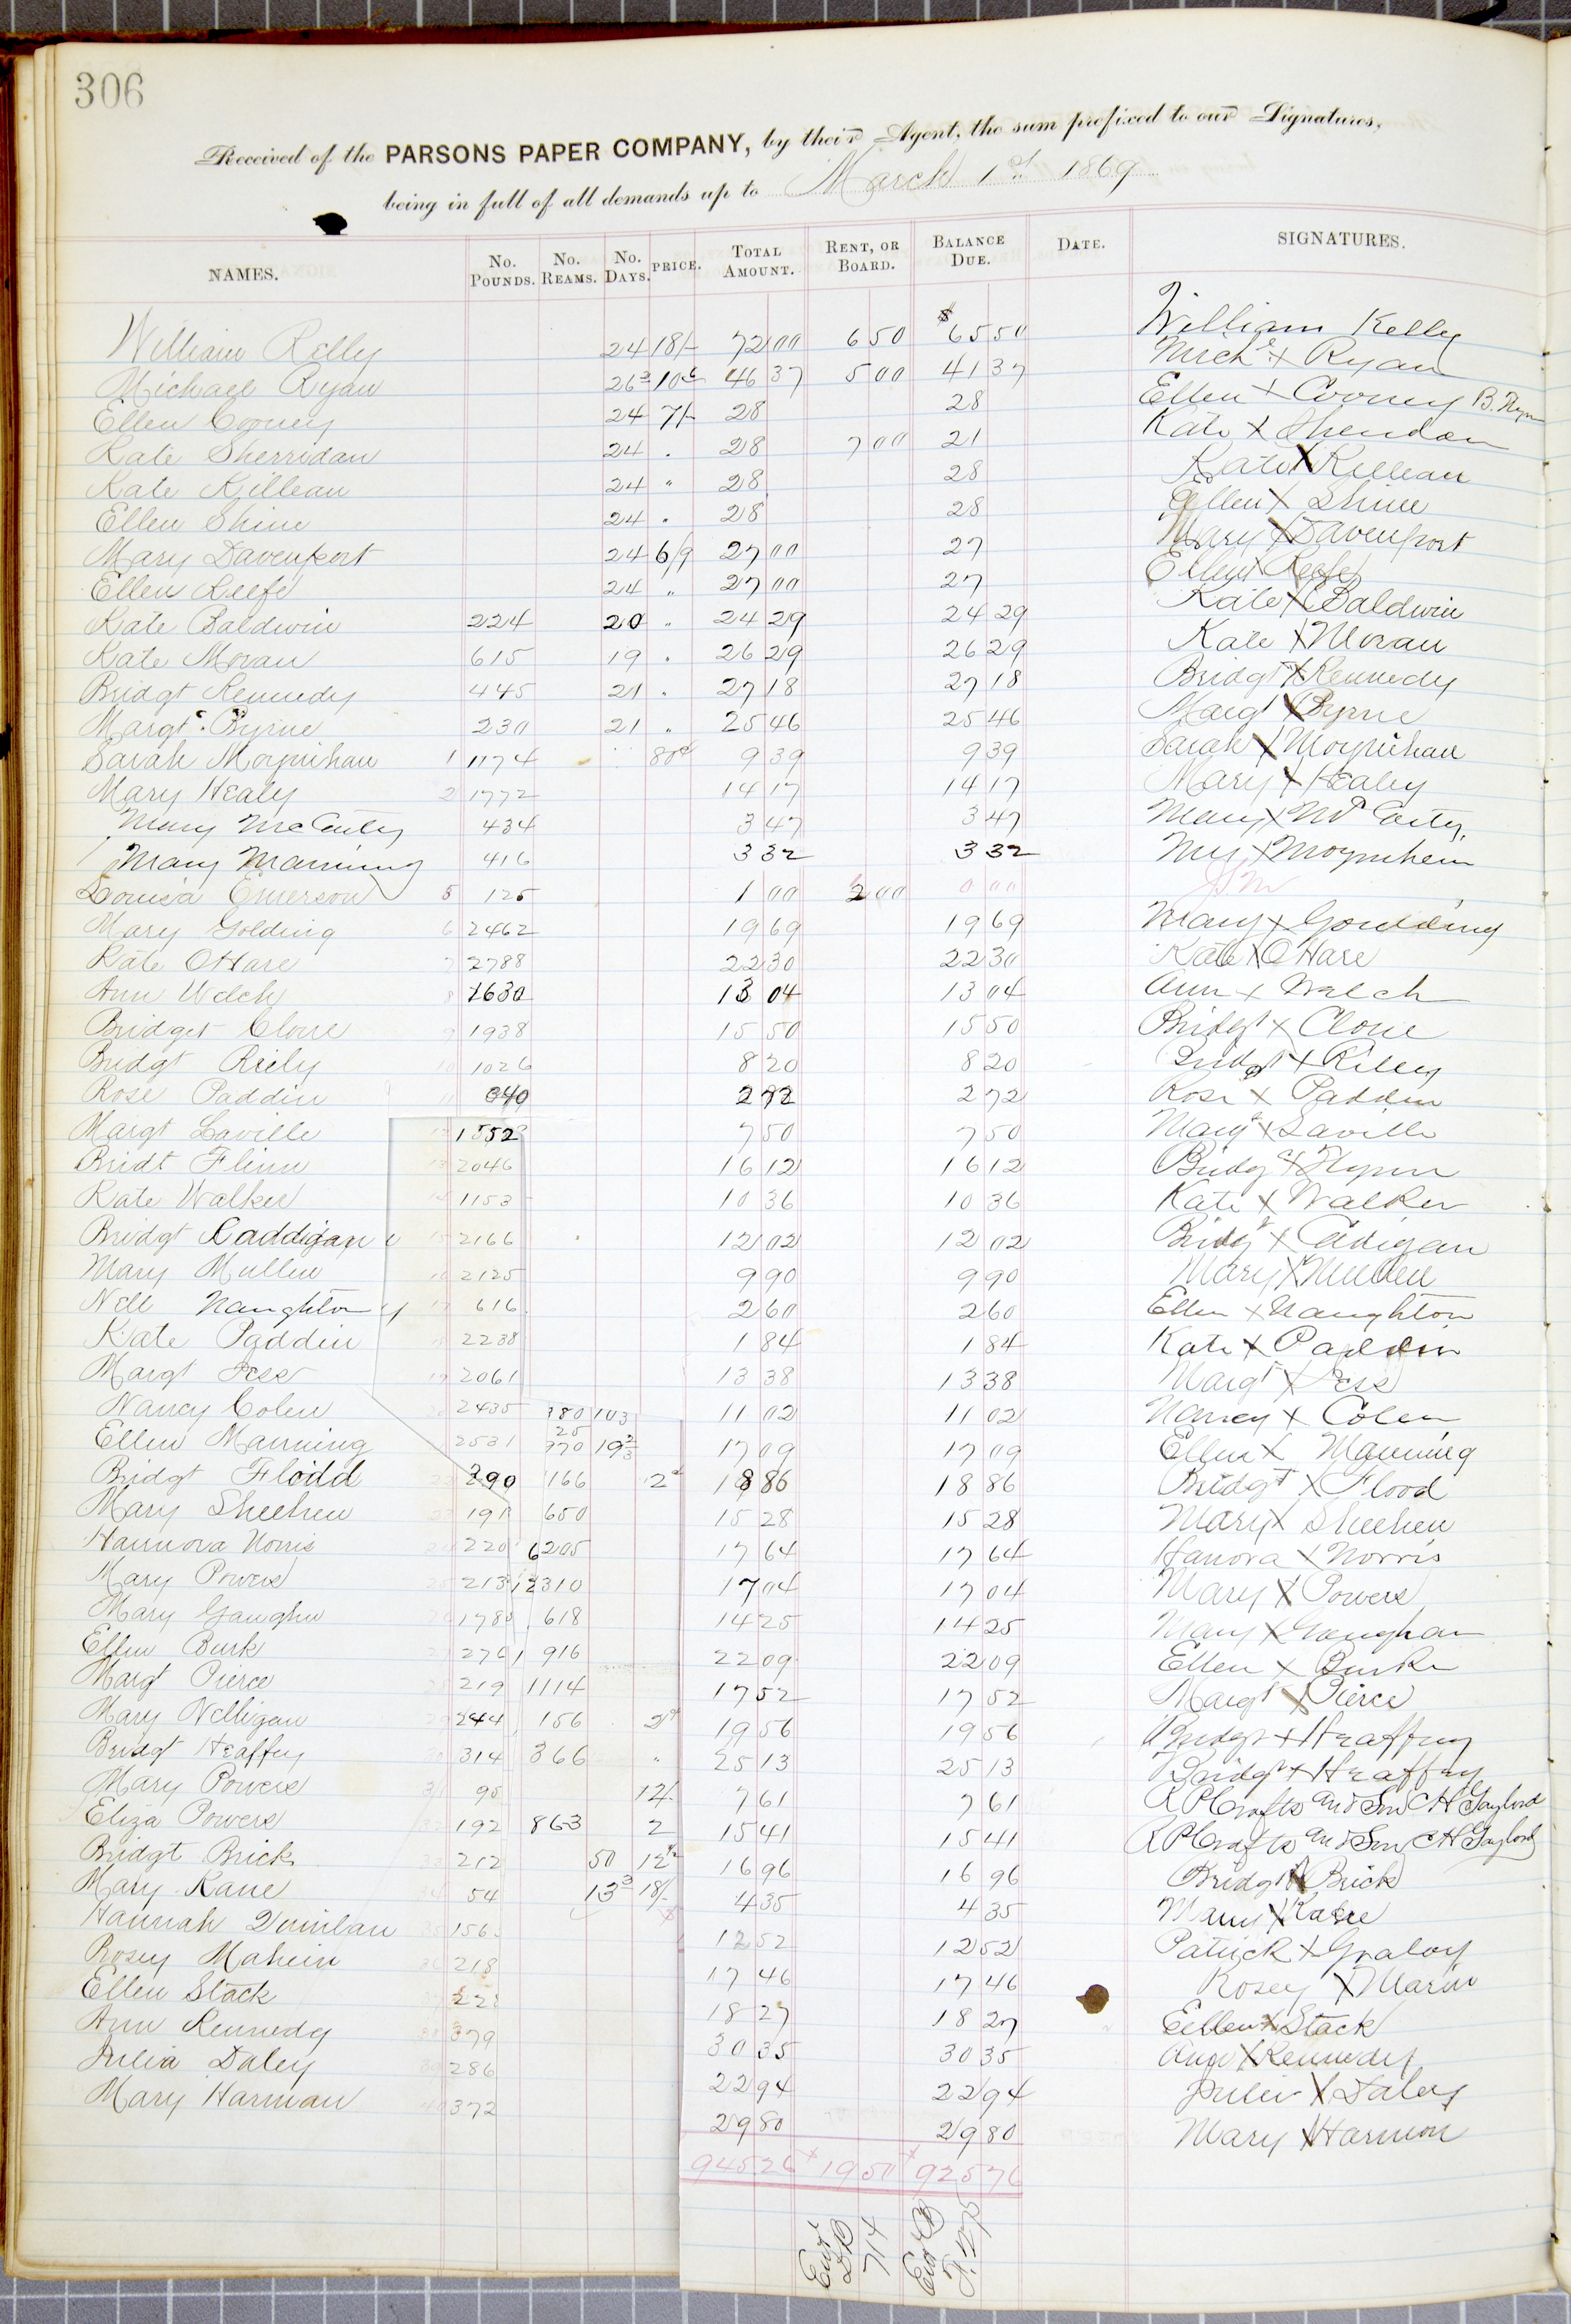 306
Received of the PARSONS PAPER COMPANY, by their Agent, the sum prefixed to our Signatures,
being in full of all demands up to March 1st 1869
NAMES. No. POUNDS. No. REAMS. No. DAYS. PRICE. TOTAL AMOUNT. RENT, OR BOARD. BALANCE DUE. DATE. SIGNATURES.
William Kelly 24 18/- 72 00 6 50 $ 65 50 William Kelly
Michael Ryan 26 10 46 37 5 00 41 37 Michl X Ryan
Ellen Cooney 24 7/- 28 28 Ellen X Cooney B. Flynn
Kate Sherridan 24 " 28 7 00 21 Kate X Sheridan
Kate Killean 24 " 28 28 Kate X Killean
Ellen Shine 24 " 28 28 Ellen X Shine
Mary Davenport 24 6/9 27 00 27 Mary X Davenport
Ellen Keefe 24 " 27 00 27 Ellen X Keefe
Kate Baldwin 224 20 " 24 29 24 29 Kate X Baldwin
Kate Moran 615 19 " 26 29 26 29 Kate X Moran
Bridgt Kennedy 445 21 " 27 18 27 18 Bridgt X Kennedy
Margt Byrne 230 21 " 25 46 25 46 Margt X Byrne
Sarah Moynihan 1 1174 80c 9 39 9 39 Sarah X Moynihan
Mary Healy 2 1772 14 17 14 17 Mary X Healey
Mary McCarty 434 3 47 3 47 Mary X McCarty
Mary Manning 416 3 32 3 32 My X Moynihein
Louisa Emerson 5 125 1 00 2 00 0 00
Mary Golding 6 2462 19 69 19 69 Mary X Goulding
Kate OHare 7 2788 22 30 22 30 Kate X OHare
Ann Welch 8 1630 13 04 13 04 Ann X Welch
Bridget Clone 9 1938 15 50 15 50 Bridgt X Clone
Bridgt Reily 10 1026 8 20 8 20 Bridgt X Riley
Rose Paddin 11 040 2 72 2 72 Rose X Padden
Margt Laville 12 1552 7 50 7 50 Margt X Laville
Bridt Flinn 13 2046 16 12 16 12 Bridgt X Flynn
Kate Walker 14 1153 10 36 10 36 Kate X Walker
Bridgt Caddigan 15 2166 12 02 12 02 Bridgt X Cadigan
Mary Mullen 16 2125 9 90 9 90 Mary X Mullen
Nell Naughton 17 616 2 60 2 60 Ellen X Naughton
Kate Paddin 18 2238 1 84 1 84 Kate X Paddin
Margt Sess 19 2061 13 38 13 38 Margt X Sess
Nancy Colen 20 2435 780 103 11 02 11 02 Nancy X Colen
Ellen Manning 2531 25 770 19 2/3 17 09 17 09 Ellen X Manning
Bridgt Flodd 290 166 2 18 86 18 86 Bridgt X Flood
Mary Sheehen 191 650 15 28 15 28 Mary X Sheehen
Hannora Norris 220 6205 17 64 17 64 Hanora X Norris
Mary Powers 213 12310 17 04 17 04 Mary X Powers
Mary Gaughn 178 618 14 25 14 25 Mary X Gaughan
Ellen Burk 276 916 22 09 22 09 Ellen X Burke
Margt Pierce 219 1114 17 52 17 52 Margt X Pierce
Mary Nelligan 244 156 2 19 56 19 56 Bridgt X Heaffey
Bridgt Heaffey 30 314 366 " 25 13 25 13 Bridgt X Heaffey
Mary Powers 31 95 12/- 7 61 7 61 R P Crafts and Son C H Gaylord
Eliza Powers 32 192 863 2 15 41 15 41 R P Crafts and Son C H Gaylord
Bridgt Brick 33 212 50 12 16 96 16 96 Bridgt X Brick
Mary Kane 34 54 13 18/- 4 35 4 35 Mary X Kane
Hannah Quinlan 35 156 12 52 12 52 Patrick X
Rosey Mahein 36 218 17 46 17 46 Rosey X Marin
Ellen Stack 18 27 18 27 Ellen X Stack
Ann Kennedy 379 30 35 30 35 Ann X Kennedy
Julia Daley 286 22 94 22 94 Julia X Daley
Mary Harman 372 29 80 29 80 Mary X Harmon
945 26 19 50 925 76
714